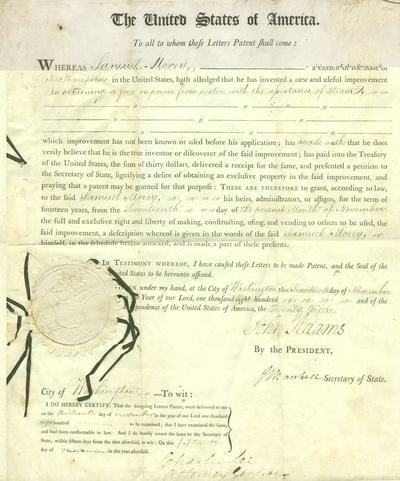 The United States of America.
To all to whom these Letters Patent shall come:
WHEREAS Samuel Morey,
New Hampshire in the United States, hath alledged that he has invented a new and useful improvement
in obtaining a force or power from water, with the assistance of Steam
which improvement has not been known or used before his application; has made oath that he does
verily believe that he is the true inventor or discoverer of the said improvement; has paid into the Treasury
of the United States, the sum of thirty dollars, delivered a receipt for the same, and presented a petition to
the Secretary of State, signifying a desire of obtaining an exclusive property in the said improvement, and
praying that a patent may be granted for that purpose: THERE ARE THEREFORE to grant, according to law,
to the said Samuel Morey, his heirs, administrators, or assigns, for the term of
fourteen years, from the Seventeenth day of the present Month of November
the full and exclusive right and liberty of making, constructing, using, and vending to others to be used, the
said improvement, a description whereof is given in the words of the said Samuel Morey,
himself, in the schedule hereto annexed, and is made a part of these presents.
IN TESTIMONY WHEREOF, I have caused these Letters to be made Patent, and the Seal of the
United States to be hereunto affixed.
GIVEN under my hand, at the City of Washington this Seventeenth day of November
Year of our Lord, one thousand eight hundred and of the
Independence of the United States of America, the Twenty Fifth.
John Adams
By the PRESIDENT,
J Marshall Secretary of State.
City of Washington To wit:
I DO HEREBY CERTIFY, That the foregoing Letters Patent, were delivered to me
on the day of november in the year of our Lord, one thousand
eight hundred to be examined; that I have examined the same,
and find them conformable to law. And I do hereby return the same to the Secretary
of State, within fifteen days from the date aforesaid, to wit: On this
day of november in the year aforesaid.
Charles Lee
Attorney General